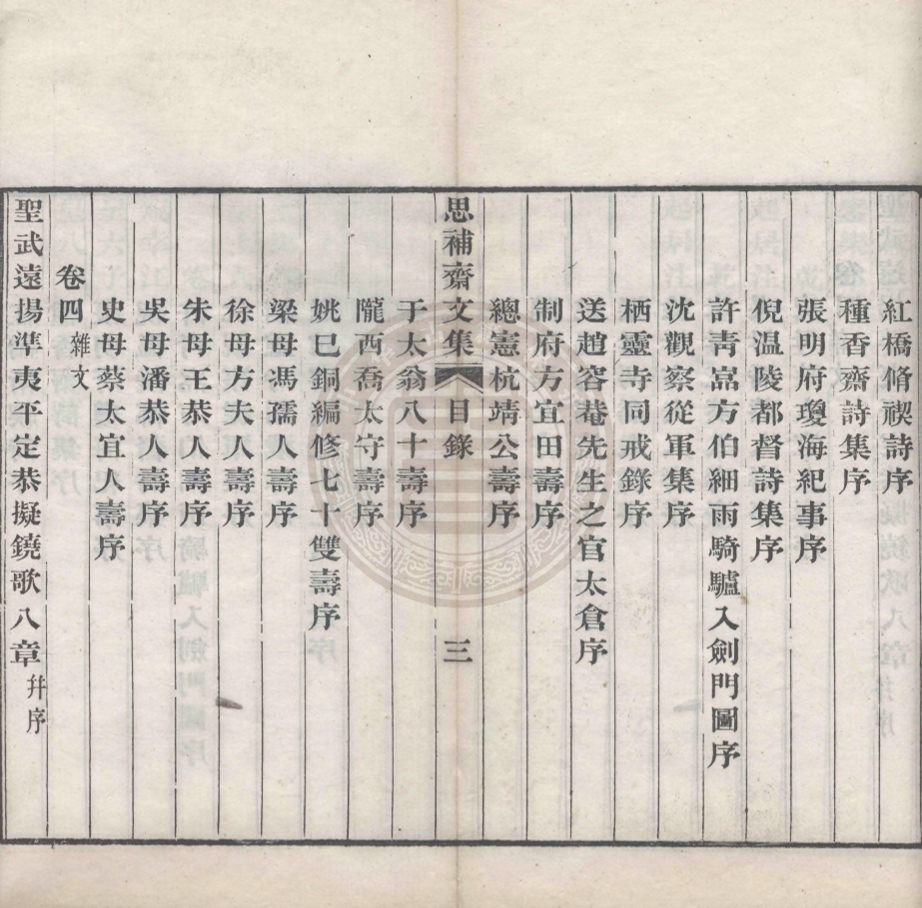 紅橋脩禊詩序
種香齋詩集序
張明府瓊海紀事序
倪温陵都督詩集序
許靑嵓方伯細雨騎驢入劍門圖序
沈觀察從軍集序
栖靈寺同戒錄序
送趙容菴先生之官太倉序
制府方宜田壽序
總憲杭靖公壽序
思補齋文集 目錄 三
于太翁八十壽序
隴西喬太守壽序
姚巳銅編修七十雙壽序
梁母馮孺人壽序
徐母方夫人壽序
朱母王恭人壽序
吳母潘恭人壽序
史母蔡太宜人壽序
卷四 雜文
聖武遠揚準夷平定恭擬鐃歌八章 幷序